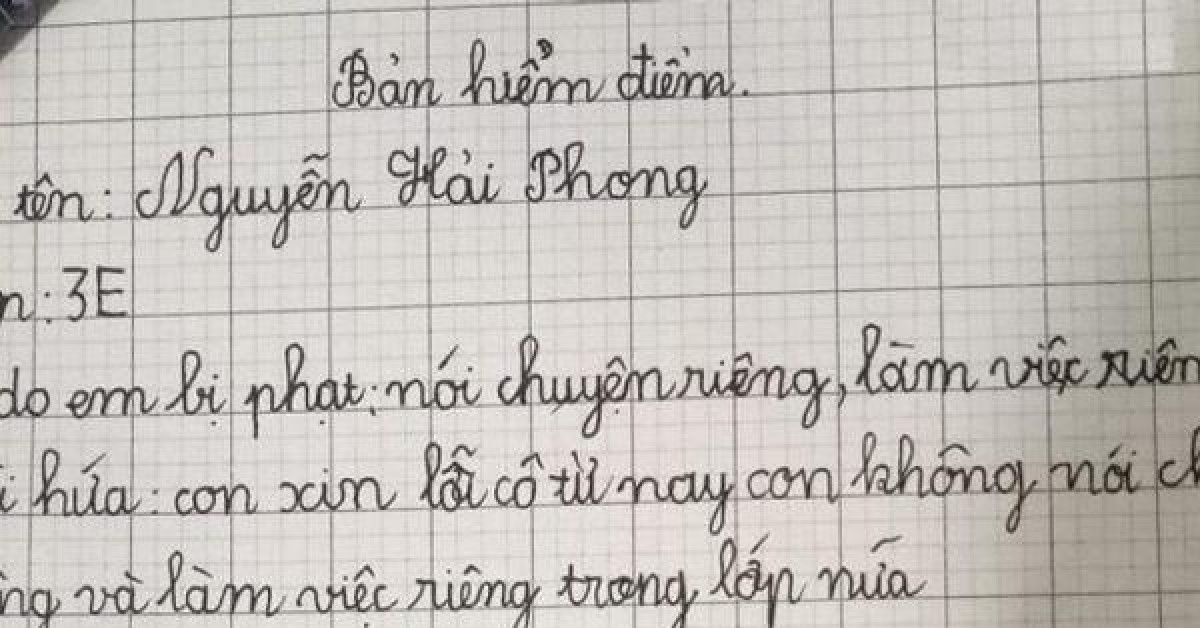 Bản hiểm điểm.
tên: Nguyễn Hải Phong
n: 3E
do em bị phạt: nói chuyện riêng, làm việc riên
i húa: con xin lỗi cô từ nay con không nói ch
ng và làm việc riêng trong lớp nũa